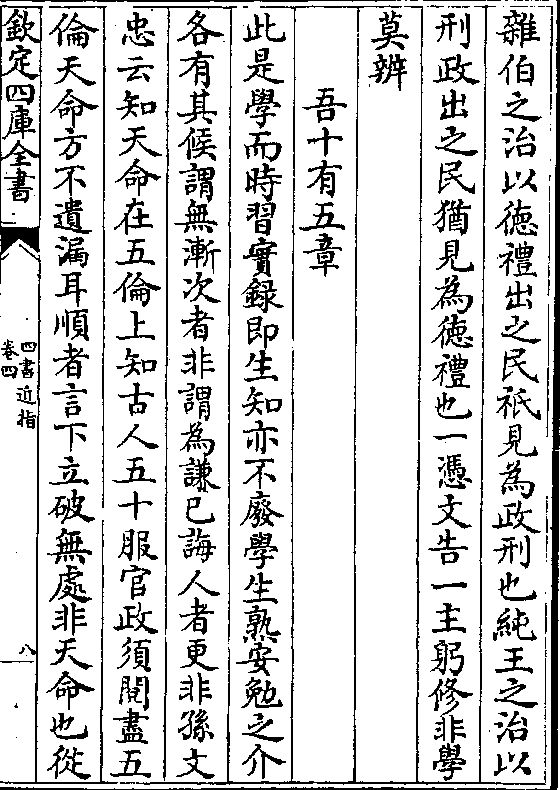 雜伯之治以德禮出之民祇見為政刑也純王之治以
刑政出之民猶見為德禮也一憑文告一主躬修非學
莫辨
吾十有五章
此是學而時習實錄即生知亦不廢學生熟安勉之介
各有其候謂無漸次者非謂為謙已誨人者更非孫文
忠云知天命在五倫上知古人五十服官政須閱盡五
倫天命方不遺漏耳順者言下立破無處非天命也從
欽定四庫全書
四書近指
卷四
八